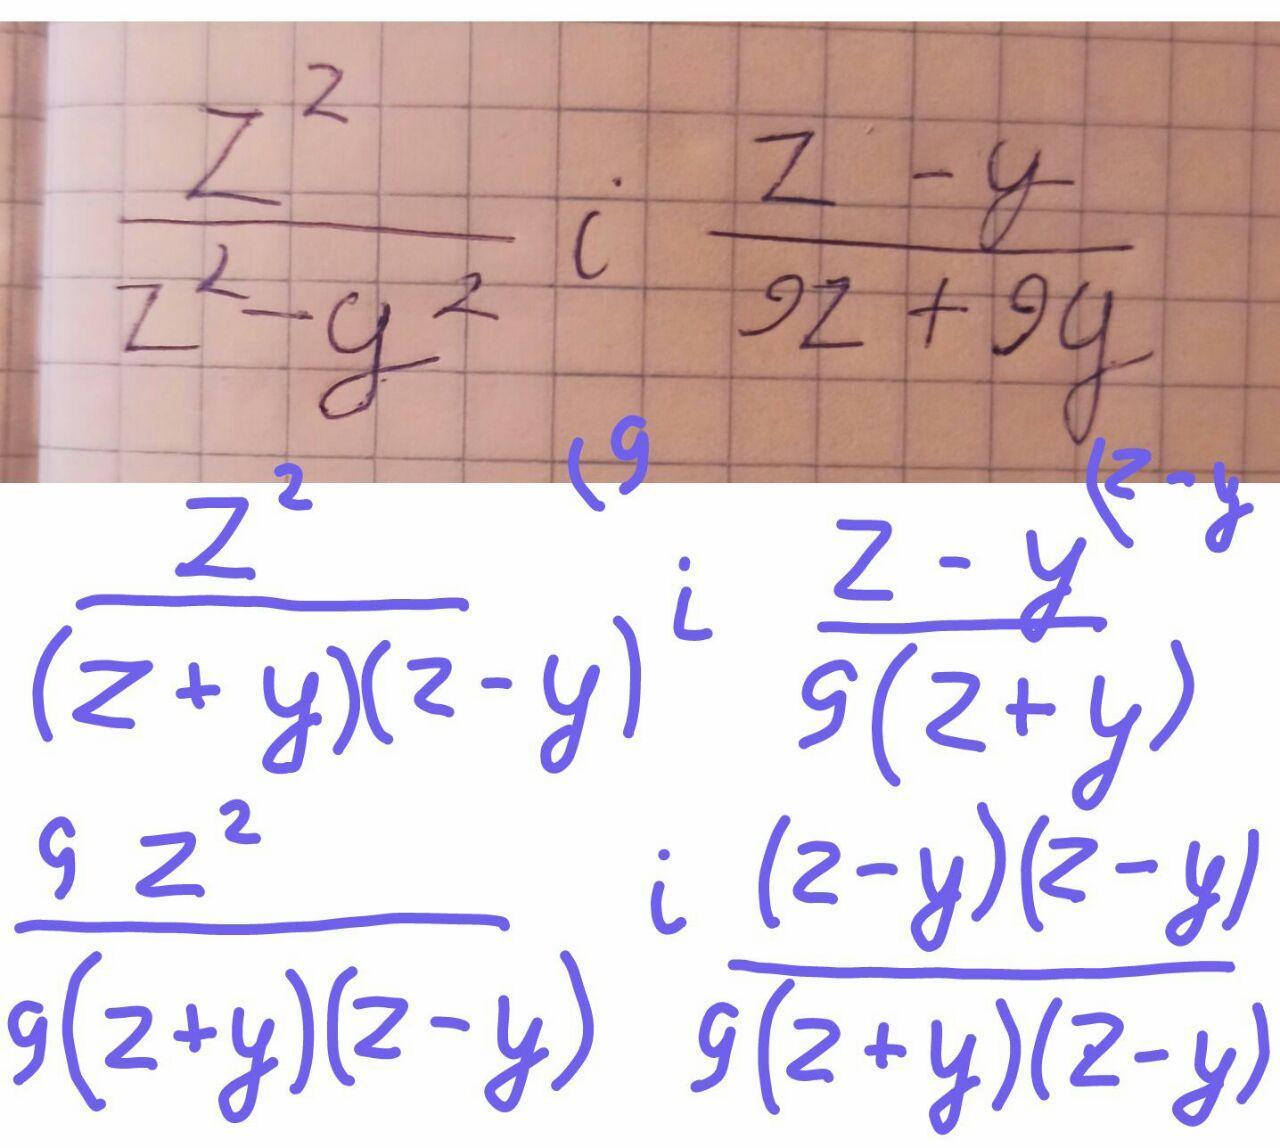 z² / (z² - y²) i (z - y) / (9z + 9y)
z² (9 / (z + y)(z - y) i z - y (z - y / 9(z + y)
9 z² / 9(z + y)(z - y) i (z - y)(z - y) / 9(z + y)(z - y)